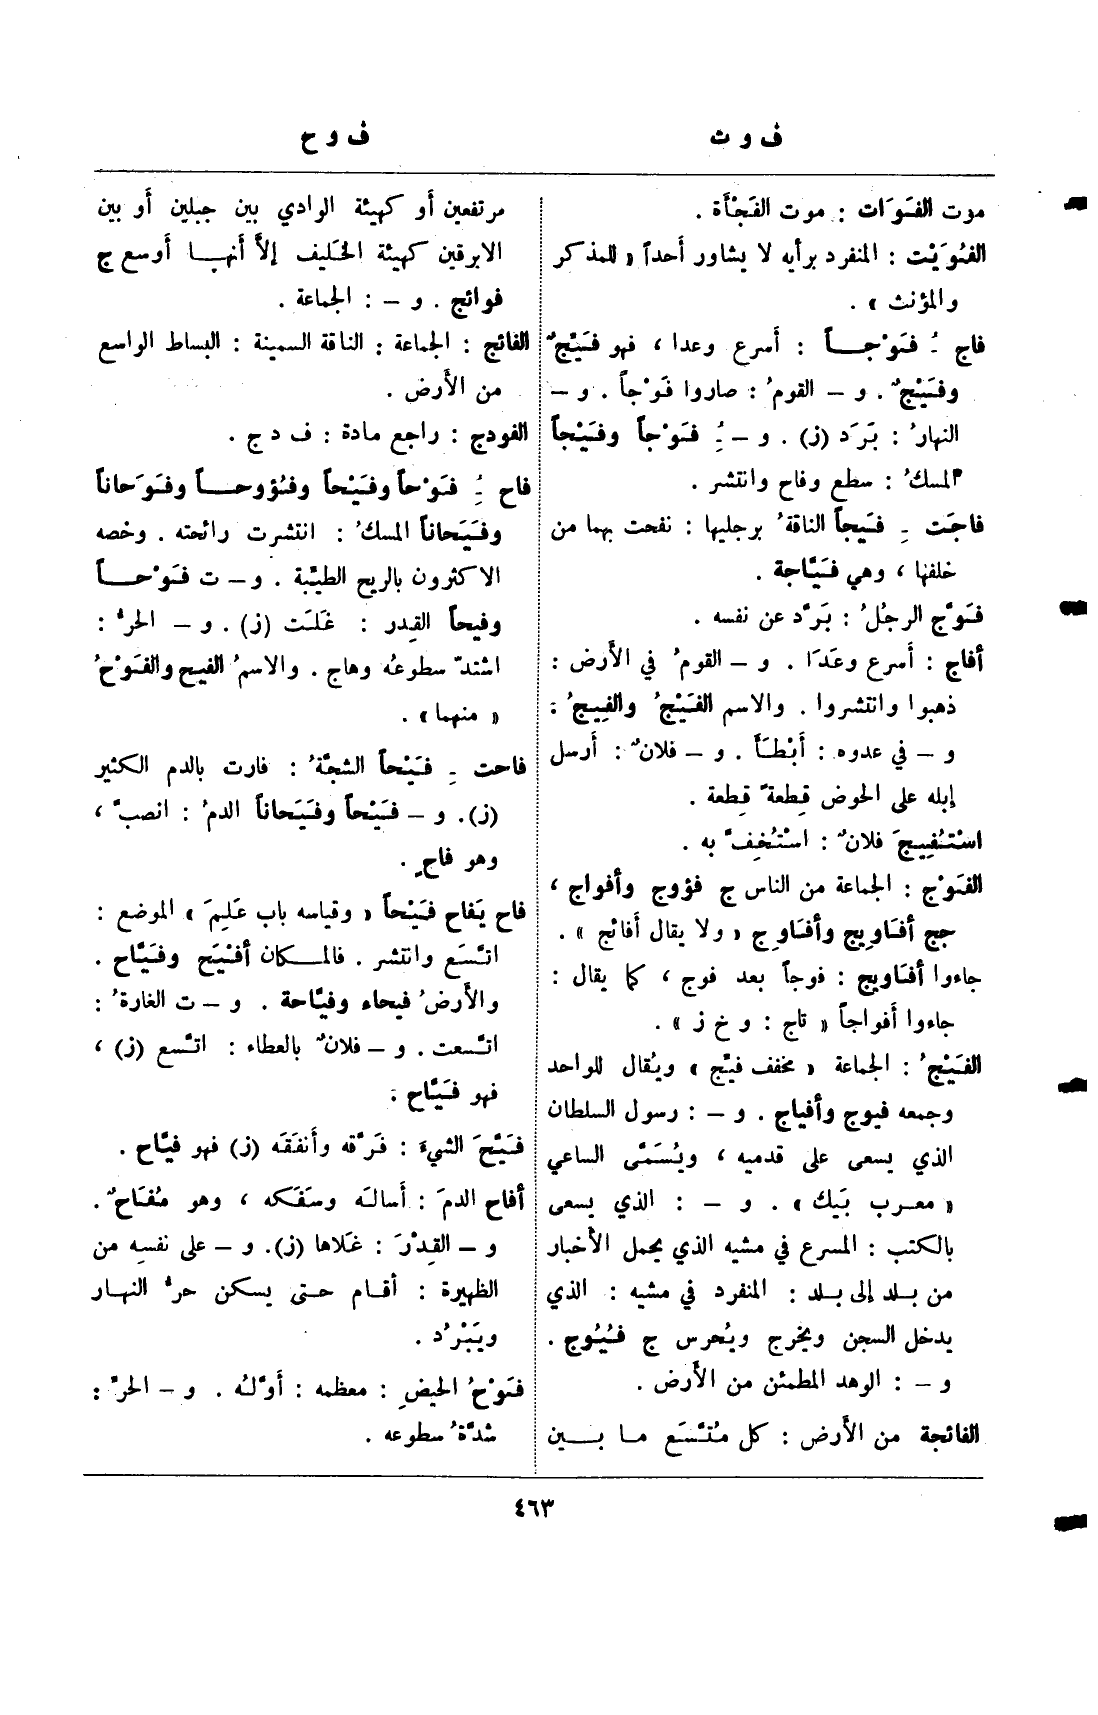 ف و ث
ف و ح
موت الفَوَات : موت الفَجْأَة .
الفُوَيْت : المنفرد برأيه لا يشاور أحداً « للمذكر
والمؤنث » .
فاج ـُ فَوْجــاً : أسرع وعدا ، فهو فَيْجٌ
وفَيْجٌ . و – القومُ : صاروا فَوْجاً . و –
النهارُ : بَرَد (ز) . و – ـُِ فَوْجاً وفَيْجاً
المسكُ : سطع وفاح وانتشر .
فاجَت ـِ فَيجاً الناقةُ برجليها : نفحت بهما من
خلفها ، وهي فَيَّاجة .
فَوَّج الرجلُ : بَرَّد عن نفسه .
أفاج : أسرع وعَدَا . و – القومُ في الأرض :
ذهبوا وانتشروا . والاسم الفَيْجُ والفِيجُ :
و – في عدوه : أَبْطَأَ . و – فلانٌ : أرسل
إبله على الحوض قِطعةً قِطعة .
اسْتُفِيجَ فلانٌ : اسْتُخِفَّ به .
الفَوْج : الجماعة من الناس ج فؤوج وأفواج ،
جج أفَاوِيج وأفَاوِج « ولا يقال أفائج » .
جاءوا أفَاويج : فوجاً بعد فوج ، كما يقال :
جاءوا أفواجاً « تاج : و خ ز » .
الفَيْجُ : الجماعة « مخفف فيّج » ويُقال للواحد
وجمعه فيوج وأفياج . و – : رسول السلطان
الذي يسعى على قدميه ، ويُسَمَّى الساعي
« معرب بَيك » . و – : الذي يسعى
بالكتب : المسرع في مشيه الذي يحمل الأخبار
من بــلد إلى بــلد : المنفرد في مشيه : الذي
يدخل السجن ويخرج ويُحرس ج فُيُوج .
و – : الوهد المطمئن من الأرض .
الفائجة من الأرض : كل مُتَّسَع ما بــين
مرتفعين أو كهيئة الوادي بين جبلين أو بين
الابرقين كهيئة الخَليف إلاَّ أنهــا أوسع ج
فوائج . و – : الجماعة .
الفائج : الجماعة : الناقة السمينة : البساط الواسع
من الأرض .
الفودج : راجع مادة : ف د ج .
فاح ـُِ فَوْحاً وفَيْحاً وفُؤوحــاً وفَوَحاناً
وفَيَحاناً المسكُ : انتشرت رائحته . وخصه
الاكثرون بالريح الطيّبة . و – ت فَوْحــاً
وفيحاً القِدر : غَلَت (ز) . و – الحرُّ :
اشتدّ سطوعُه وهاج . والاسمُ الفيح والفَوْحُ
« منهما » .
فاحت ـِ فَيْحاً الشجّةُ : فارت بالدم الكثير
(ز) . و – فَيْحاً وفَيَحاناً الدمُ : انصبَّ ،
وهو فاحٍ .
فاح يَفاح فَيْحاً « وقياسه باب عَلِمَ » الموضع :
اتَّسَع وانتشر . فالمــكان أفْيَح وفَيَّاح .
والأرضُ فيحاء وفيّاحة . و – ت الغارةُ :
اتَّسعت . و – فلانٌ بالعطاء : اتَّسع (ز) ،
فهو فَيَّاح .
فَيَّحَ الشيءَ : فَرَّقه وأنفَقَه (ز) فهو فيّاح .
أفاح الدمَ : أسالَه وسَفَكه ، وهو مُفَاحٌ .
و – القِدْرَ : غَلاها (ز) . و – على نفسِه من
الظهيرة : أقــام حــتى يسكن حرُّ النهــار
ويَبْرُد .
فَوْحُ الحيضِ : معظمه : أوّلُه . و – الحرِّ :
شدَّةُ سطوعه .
٤٦٣